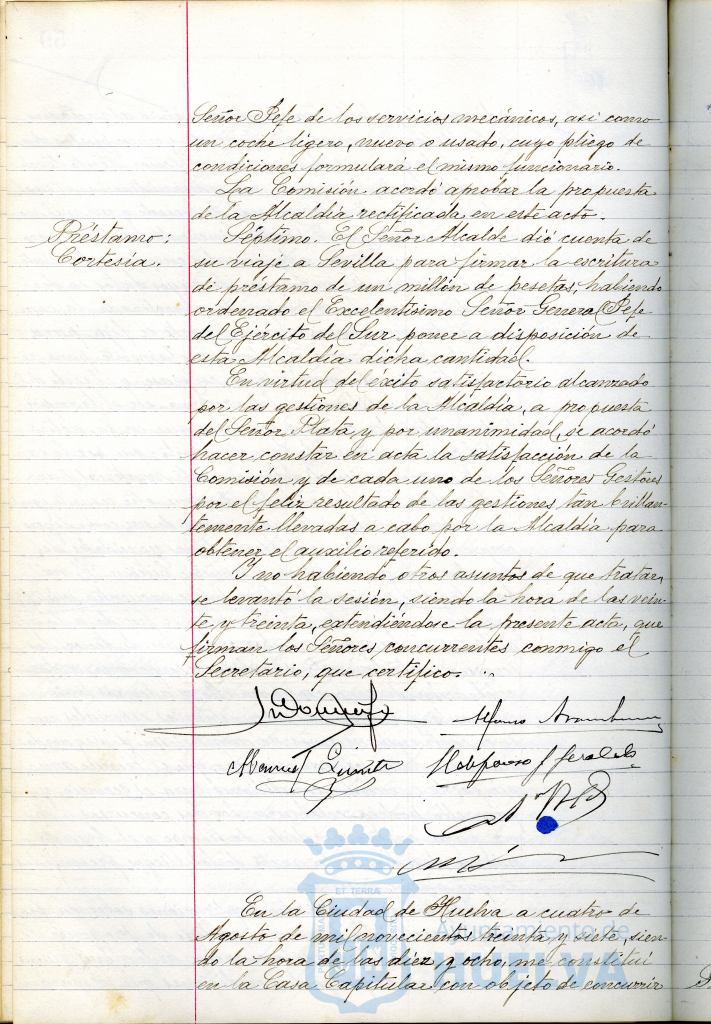 Señor Jefe de los servicios mecánicos, asi como
un coche ligero, nuevo o usado, cuyo pliego de
condiciones formulará el mismo funcionario.
La Comisión acordó aprobar la propuesta
de la Alcaldía rectificada en este acto.
Préstamo:
Cortesía.
Séptimo. El Señor Alcalde dió cuenta de
su viaje a Sevilla para firmar la escritura
de préstamo de un millón de pesetas, habiendo
ordenado el Excelentísimo Señor General Jefe
del Ejército del Sur poner a disposición de
esta Alcaldía dicha cantidad.
En virtud del éxito satisfactorio alcanzado
por las gestiones de la Alcaldía, a propuesta
del Señor Plata y por unanimidad, se acordó
hacer constar en acta la satisfacción de la
Comisión y de cada uno de los Señores Gestores
por el feliz resultado de las gestiones tan brillan-
temente llevadas a cabo por la Alcaldía para
obtener el auxilio referido.
Y no habiendo otros asuntos de que tratar,
se levantó la sesión, siendo la hora de las vein-
te y treinta, extendiéndose la presente acta, que
firman los Señores concurrentes conmigo el
Secretario, que certifico.
Alfonso
Manuel
Ildefonso
ET TERRÆ
En la Ciudad de Huelva a cuatro de
Agosto de mil novecientos treinta y siete, sien-
do la hora de las diez y ocho, me constituí
en la Casa Capitular con objeto de concurrir
Ayuntamiento de
HUELVA